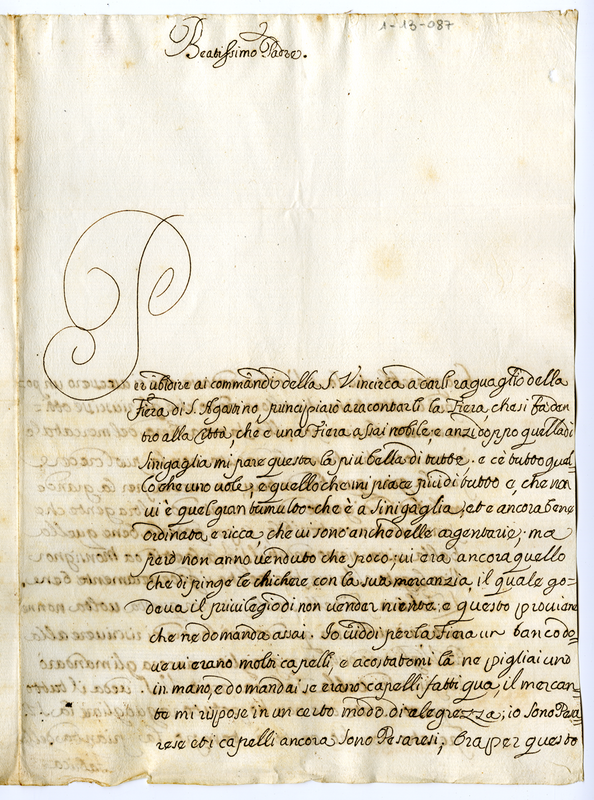 1-13-087
Beatissimo Padre.
Per ubidire ai commandi della S. V. incirca a darli raguaglio della
Fiera di S. Agostino principiarò a racontarli la Fiera, che si fà den
tro alla città, che è una Fiera assai nobile, e anzi doppo quella di
Sinigaglia mi pare questa la più bella di tutte. e c'è tutto quel=
lo che uno vole, e quello che mi piace più di tutto è, che non
vi è quel gran tumulto che è a Sinigaglia, et è ancora bene
ordinata e ricca, che vi sono anche delle argentarie; ma
però non anno venduto che poco; vi era ancora quello
che dipinge le chichere con la sua mercanzia, il quale go=
deva il privilegio di non vender niente; e questo proviene
che ne domanda assai. Io viddi per la Fiera un banco do=
ve vi erano molti capelli, e acostatomi là ne pigliai uno
in mano, e domandai se erano capelli fatti quà, il mercan=
te mi rispose in un certo modo di alegrezza; io sono Pesa
rese et i capelli ancora sono Pesaresi; Ora per questo